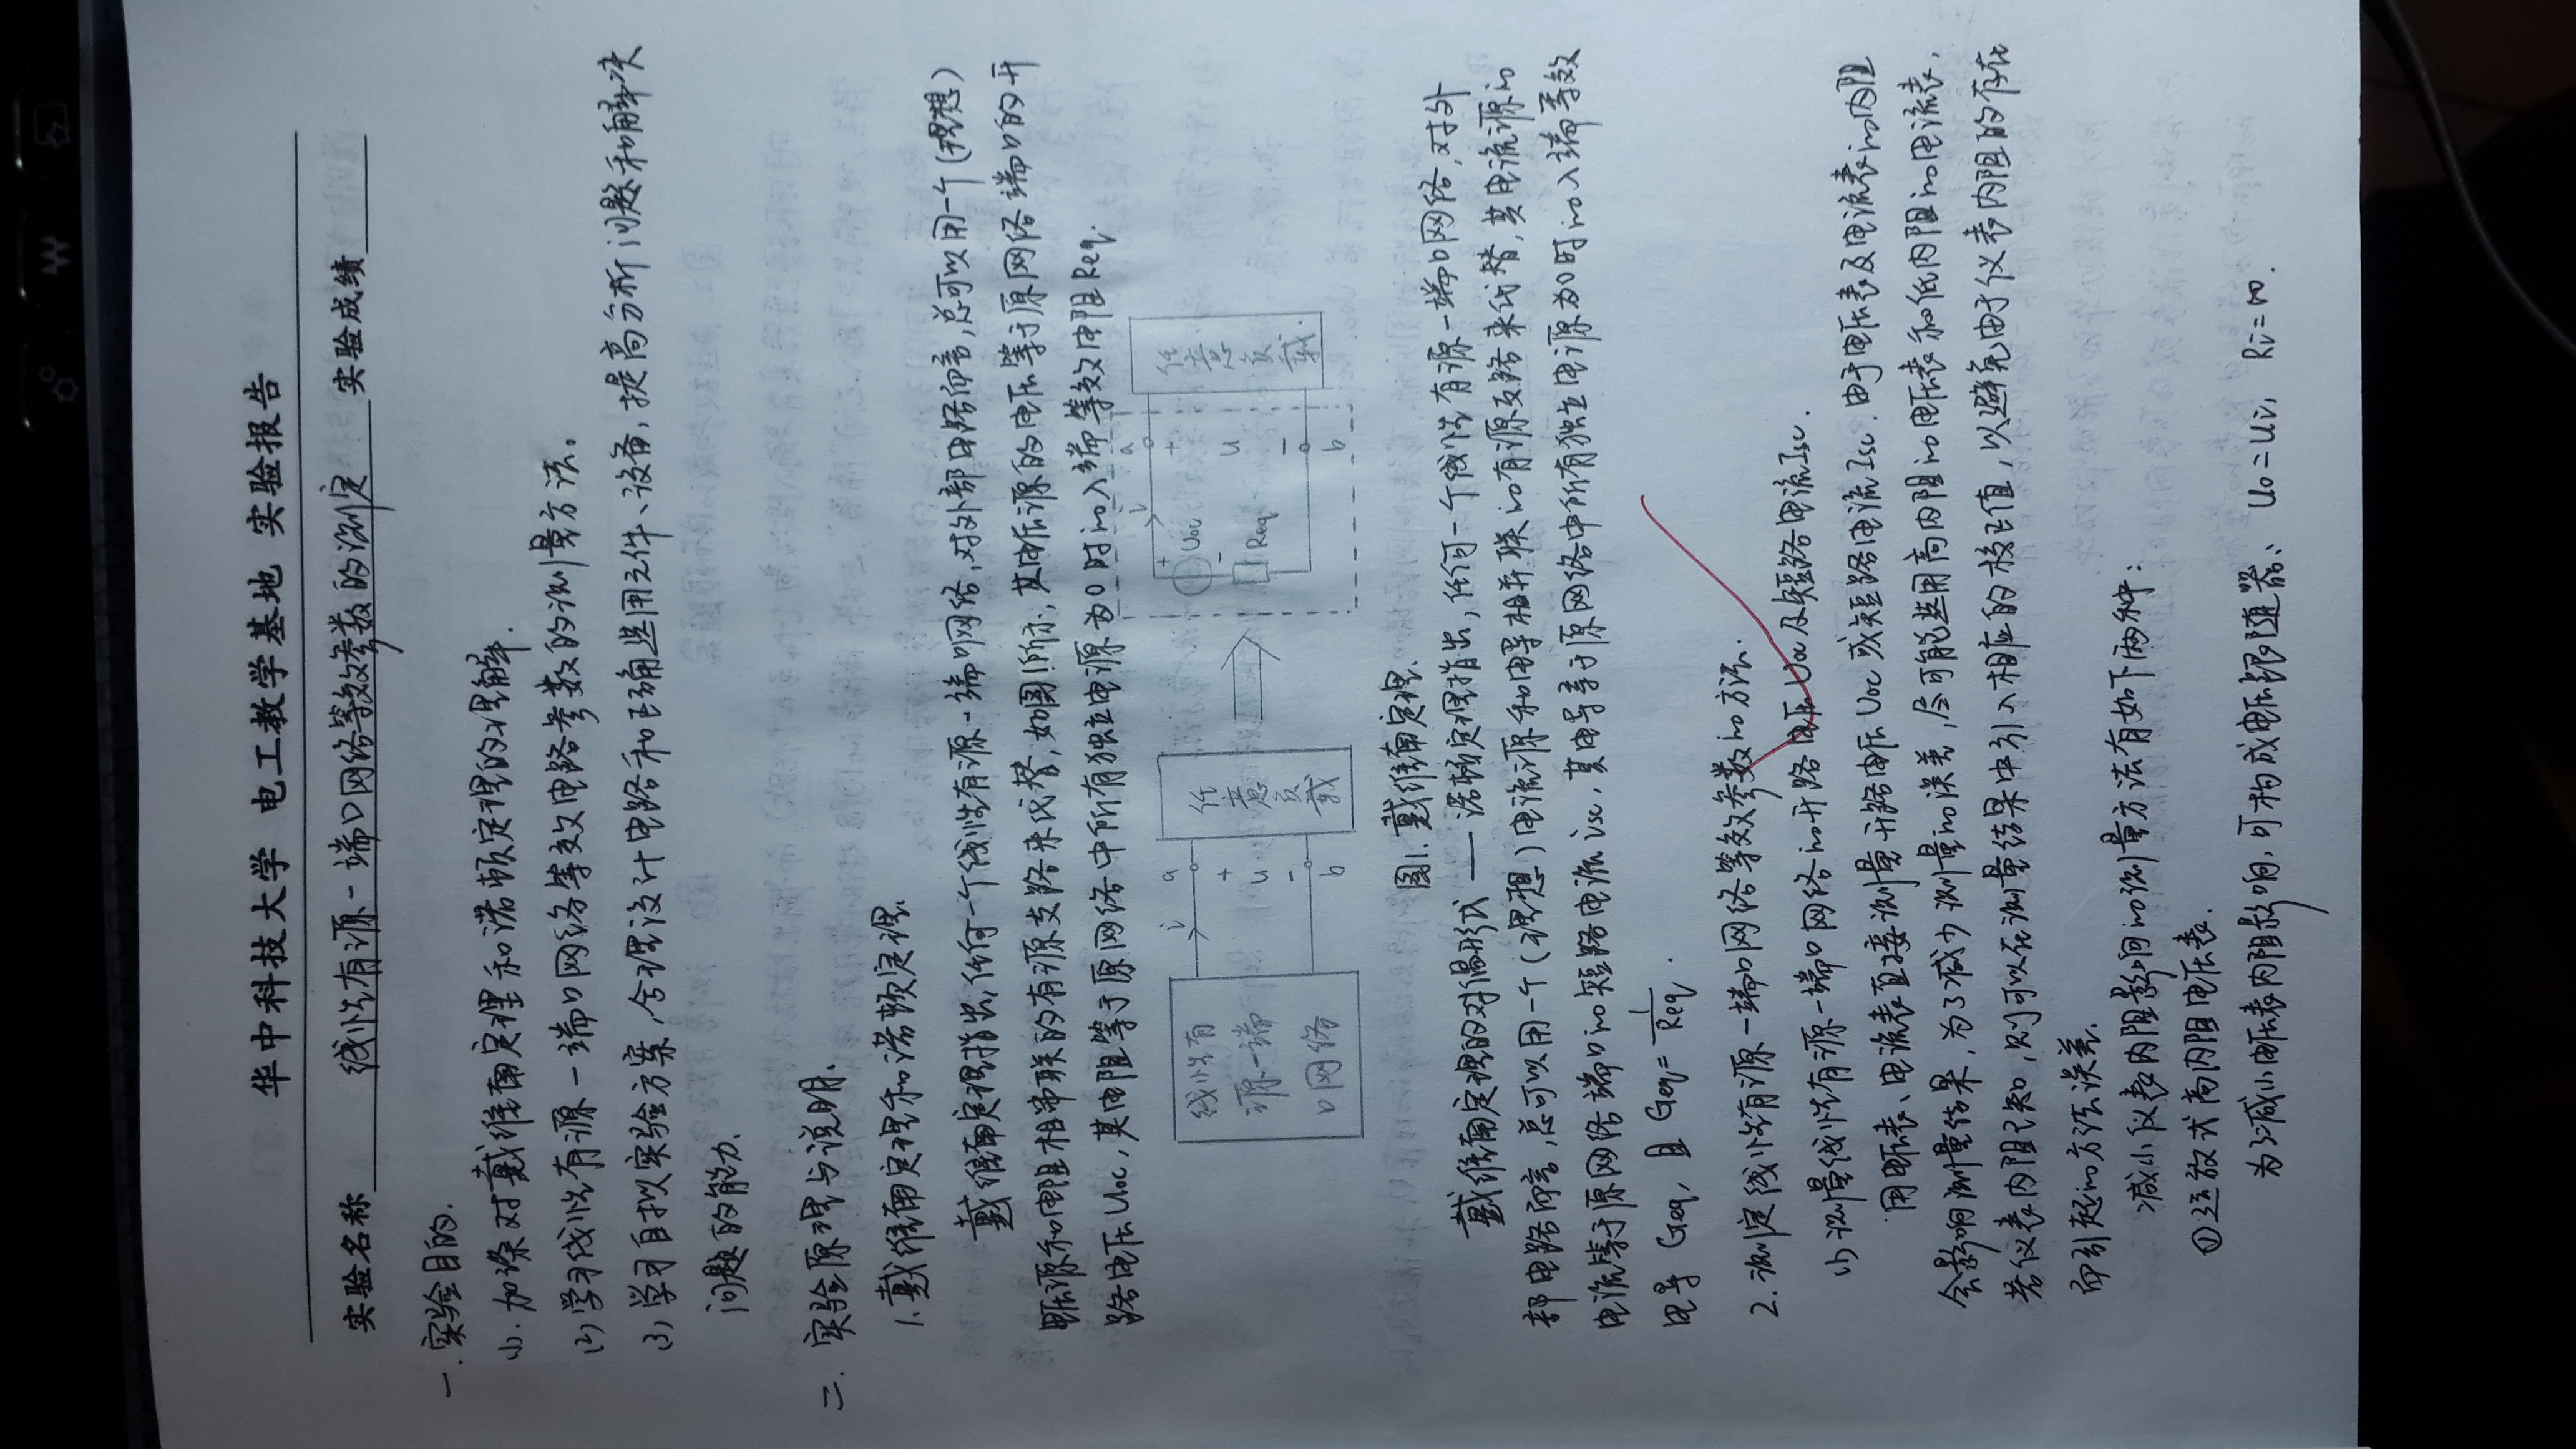 华中科技大学 电工教学基地 实验报告
实验名称 线性有源一端口网络等效参数的测定 实验成绩
一. 实验目的.
(1). 加深对戴维南定理和诺顿定理的理解.
(2) 学习线性有源一端口网络等效电路参数的测量方法。
(3) 学习自拟实验方案,合理设计电路和正确选用元件、设备,提高分析问题和解决
问题的能力.
二. 实验原理与说明.
1. 戴维南定理和诺顿定理.
戴维南定理指出,任何一个线性有源一端口网络,对外部电路而言,总可以用一个(理想)
电压源和电阻相串联的有源支路来代替,如图1所示,其电压源的电压等于原网络端口的开
路电压Uoc,其电阻等于原网络中所有独立电源为0时的入端等效电阻Req.
线性有
源一端
口网络
i a
+
u
-
b
任意负载
+
Uoc
-
Req
i a
+
u
-
b
任意负载.
图1. 戴维南定理.
戴维南定理的对偶形式——诺顿定理指出,任何一个线性有源一端口网络,对外
部电路而言,总可以用一个(理想)电流源和电导相并联的有源支路来代替,其电流源的
电流等于原网络端口的短路电流isc,其电导等于原网络中所有独立电源为0时的入端等效
电导 Geq, 且 Geq = 1/Req .
2. 测定线性有源一端口网络等效参数的方法.
(1) 测量线性有源一端口网络的开路电压Uoc及短路电流Isc.
用电压表、电流表直接测量开路电压Uoc或短路电流Isc. 由于电压表及电流表的内阻
会影响测量结果,为了减少测量的误差,尽可能选用高内阻的电压表和低内阻的电流表,
若仪表内阻已知,则可以在测量结果中引入相应的校正值,以避免由于仪表内阻的存在
而引起的方法误差.
减小仪表内阻影响的测量方法有如下两种:
① 运放式高内阻电压表.
为了减小电压表内阻影响,可构成电压跟随器、 Uo=Ui, Ri=∞.